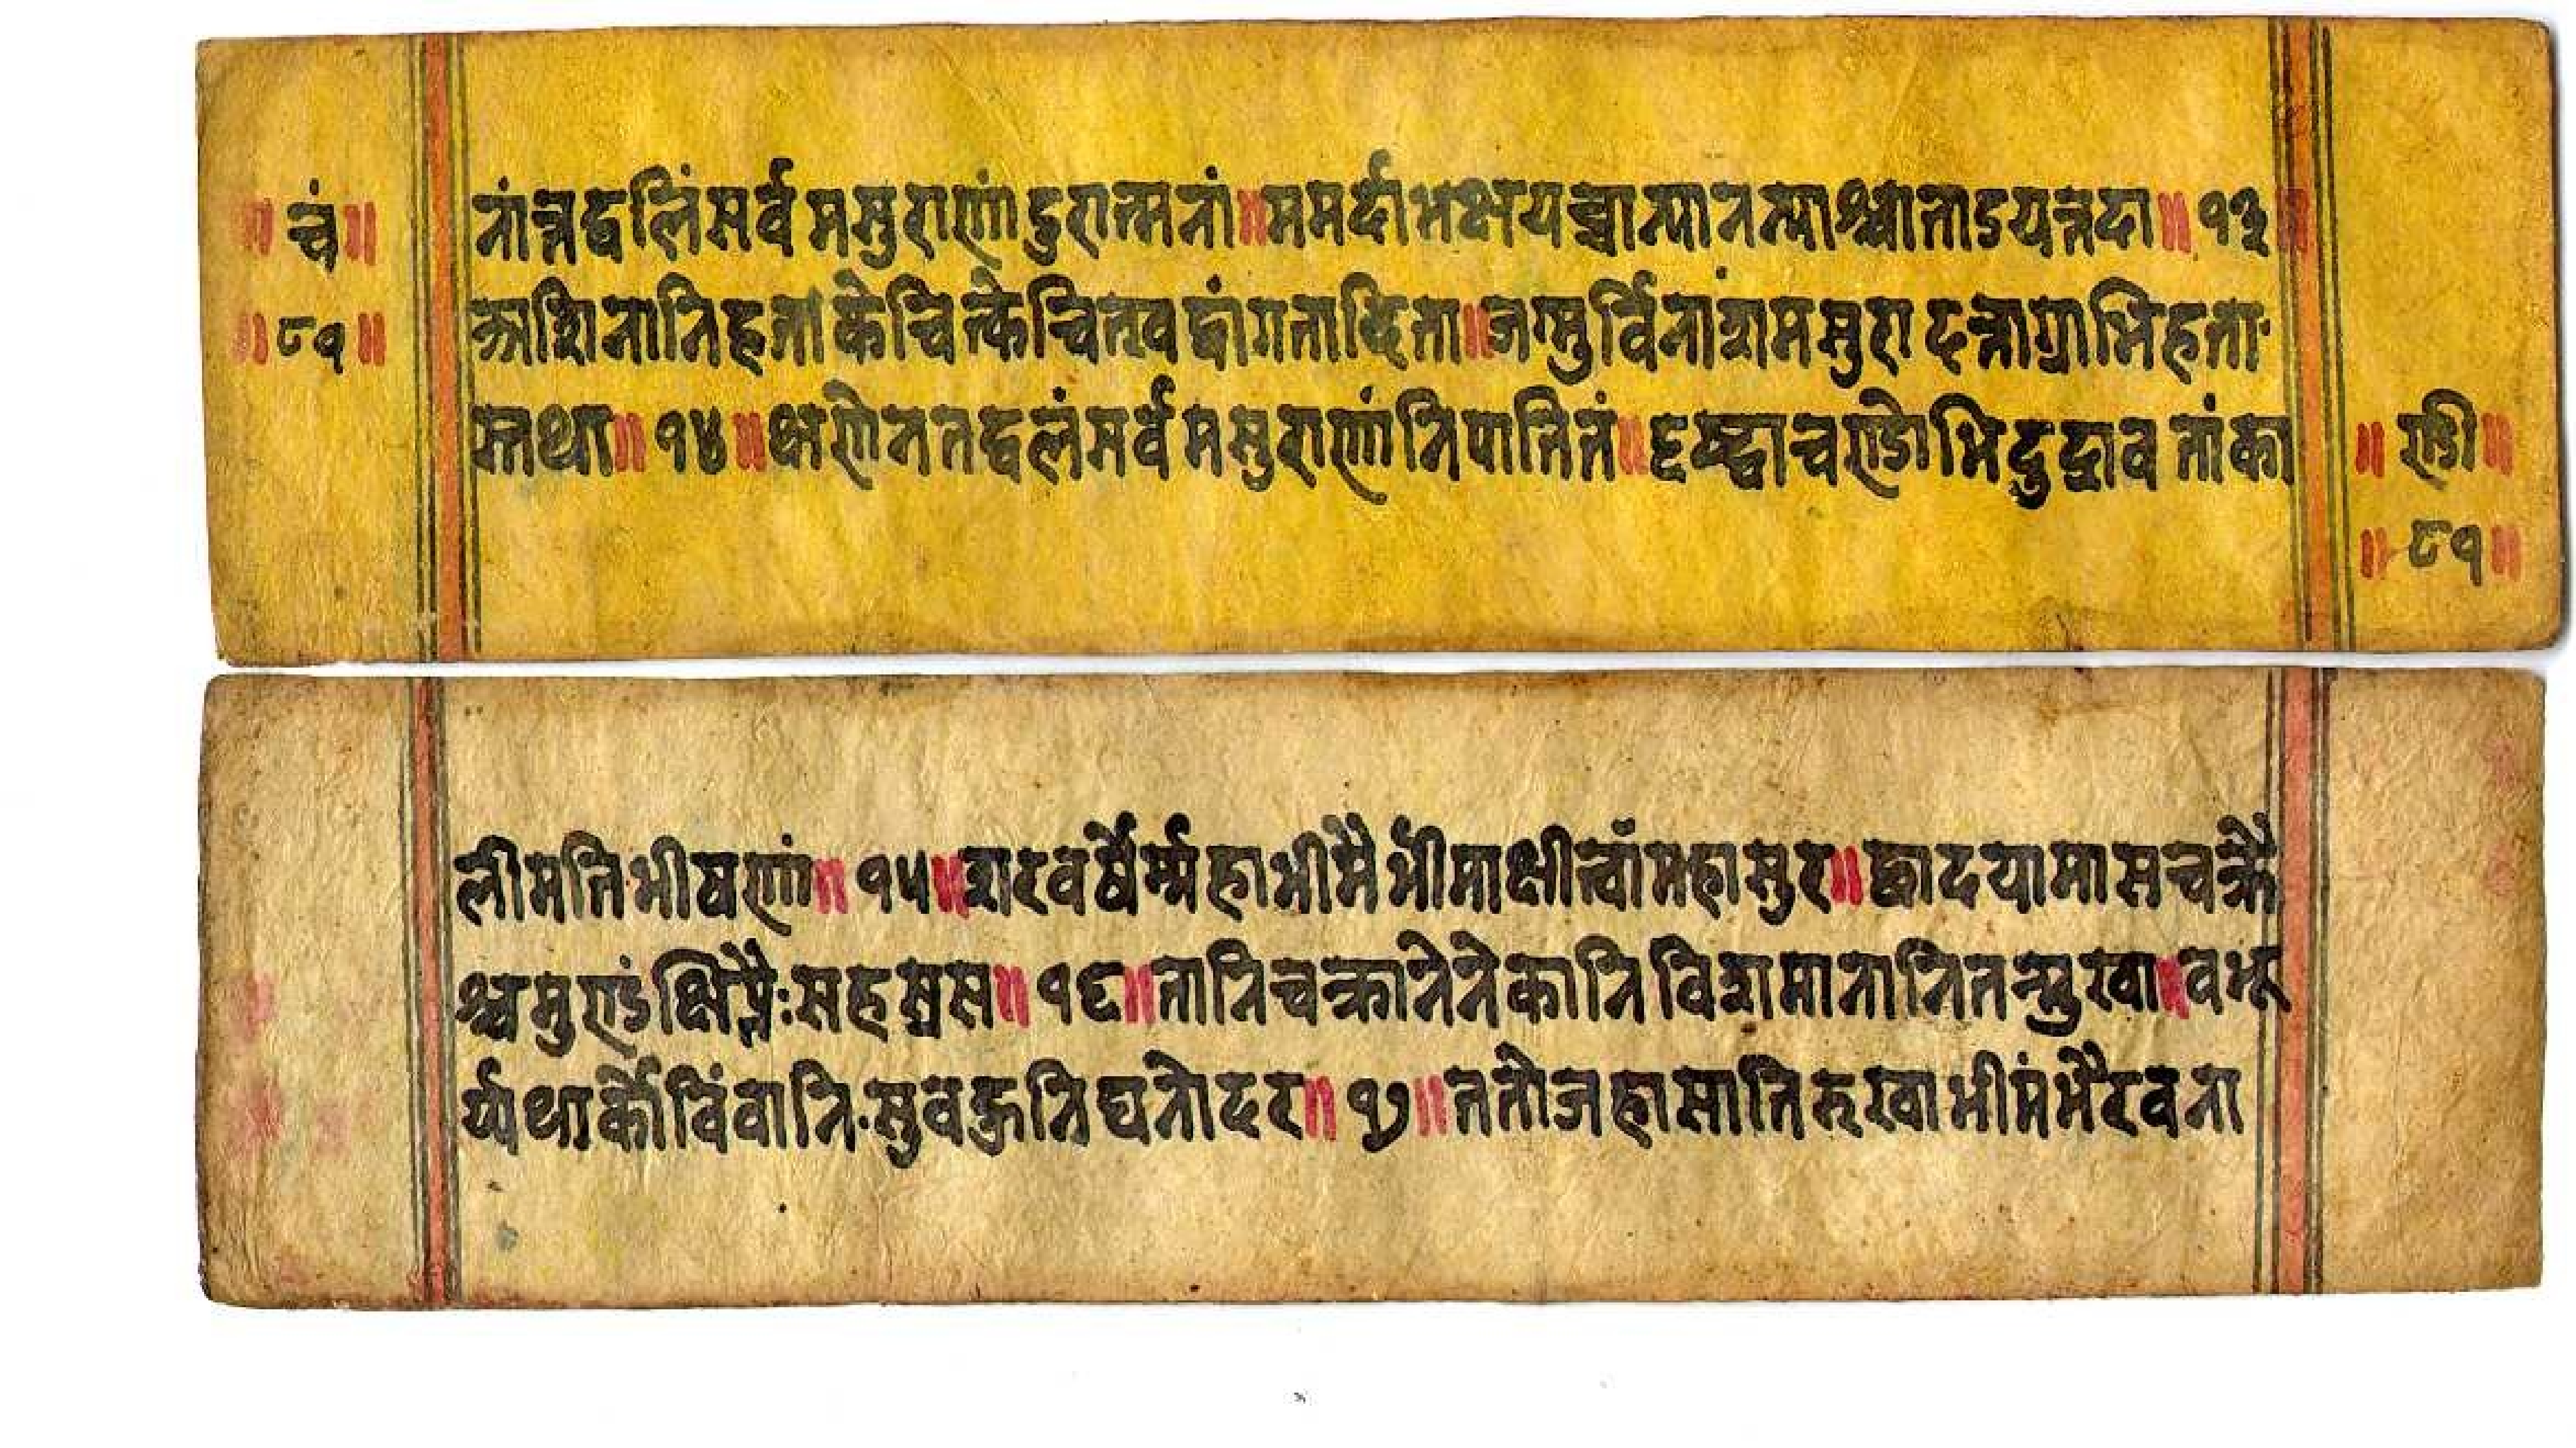 ॥ चं ॥
॥ ८१ ॥
नांन्नद्वलिंसर्व मसुराणां दुरात्मनां ॥ ममर्दाभक्षयच्चान्यानन्याश्चाताडयत्तदा ॥ १३ ॥
काशिनानिहता केचित्केचित्खद्वांगताडिता ॥ जग्मुर्विनाशमसुरा दन्ताग्राभिहताः
स्तथा ॥ १४ ॥ क्षणेन तद्वलं सर्व मसुराणां निपातितं ॥ दृष्ट्वा चण्डोभिदुद्राव तां का
॥ ण्डी ॥
॥ ८१ ॥
लीमतिभीषणां ॥ १५ ॥ शरवर्षैर्म्महाभीमै र्भीमाक्षीत्वांमहासुर ॥ छादयामास चक्रै
श्चमुण्डं क्षिप्तैः सहस्रस ॥ १६ ॥ तानि चक्रानेनेकानि विशमानानि तन्मुखा । वभू
र्य्यथार्कौविंवानि सुवहुनि घनोदर ॥ १७ ॥ ततो जहासातिरुखा भीमं भैरवना